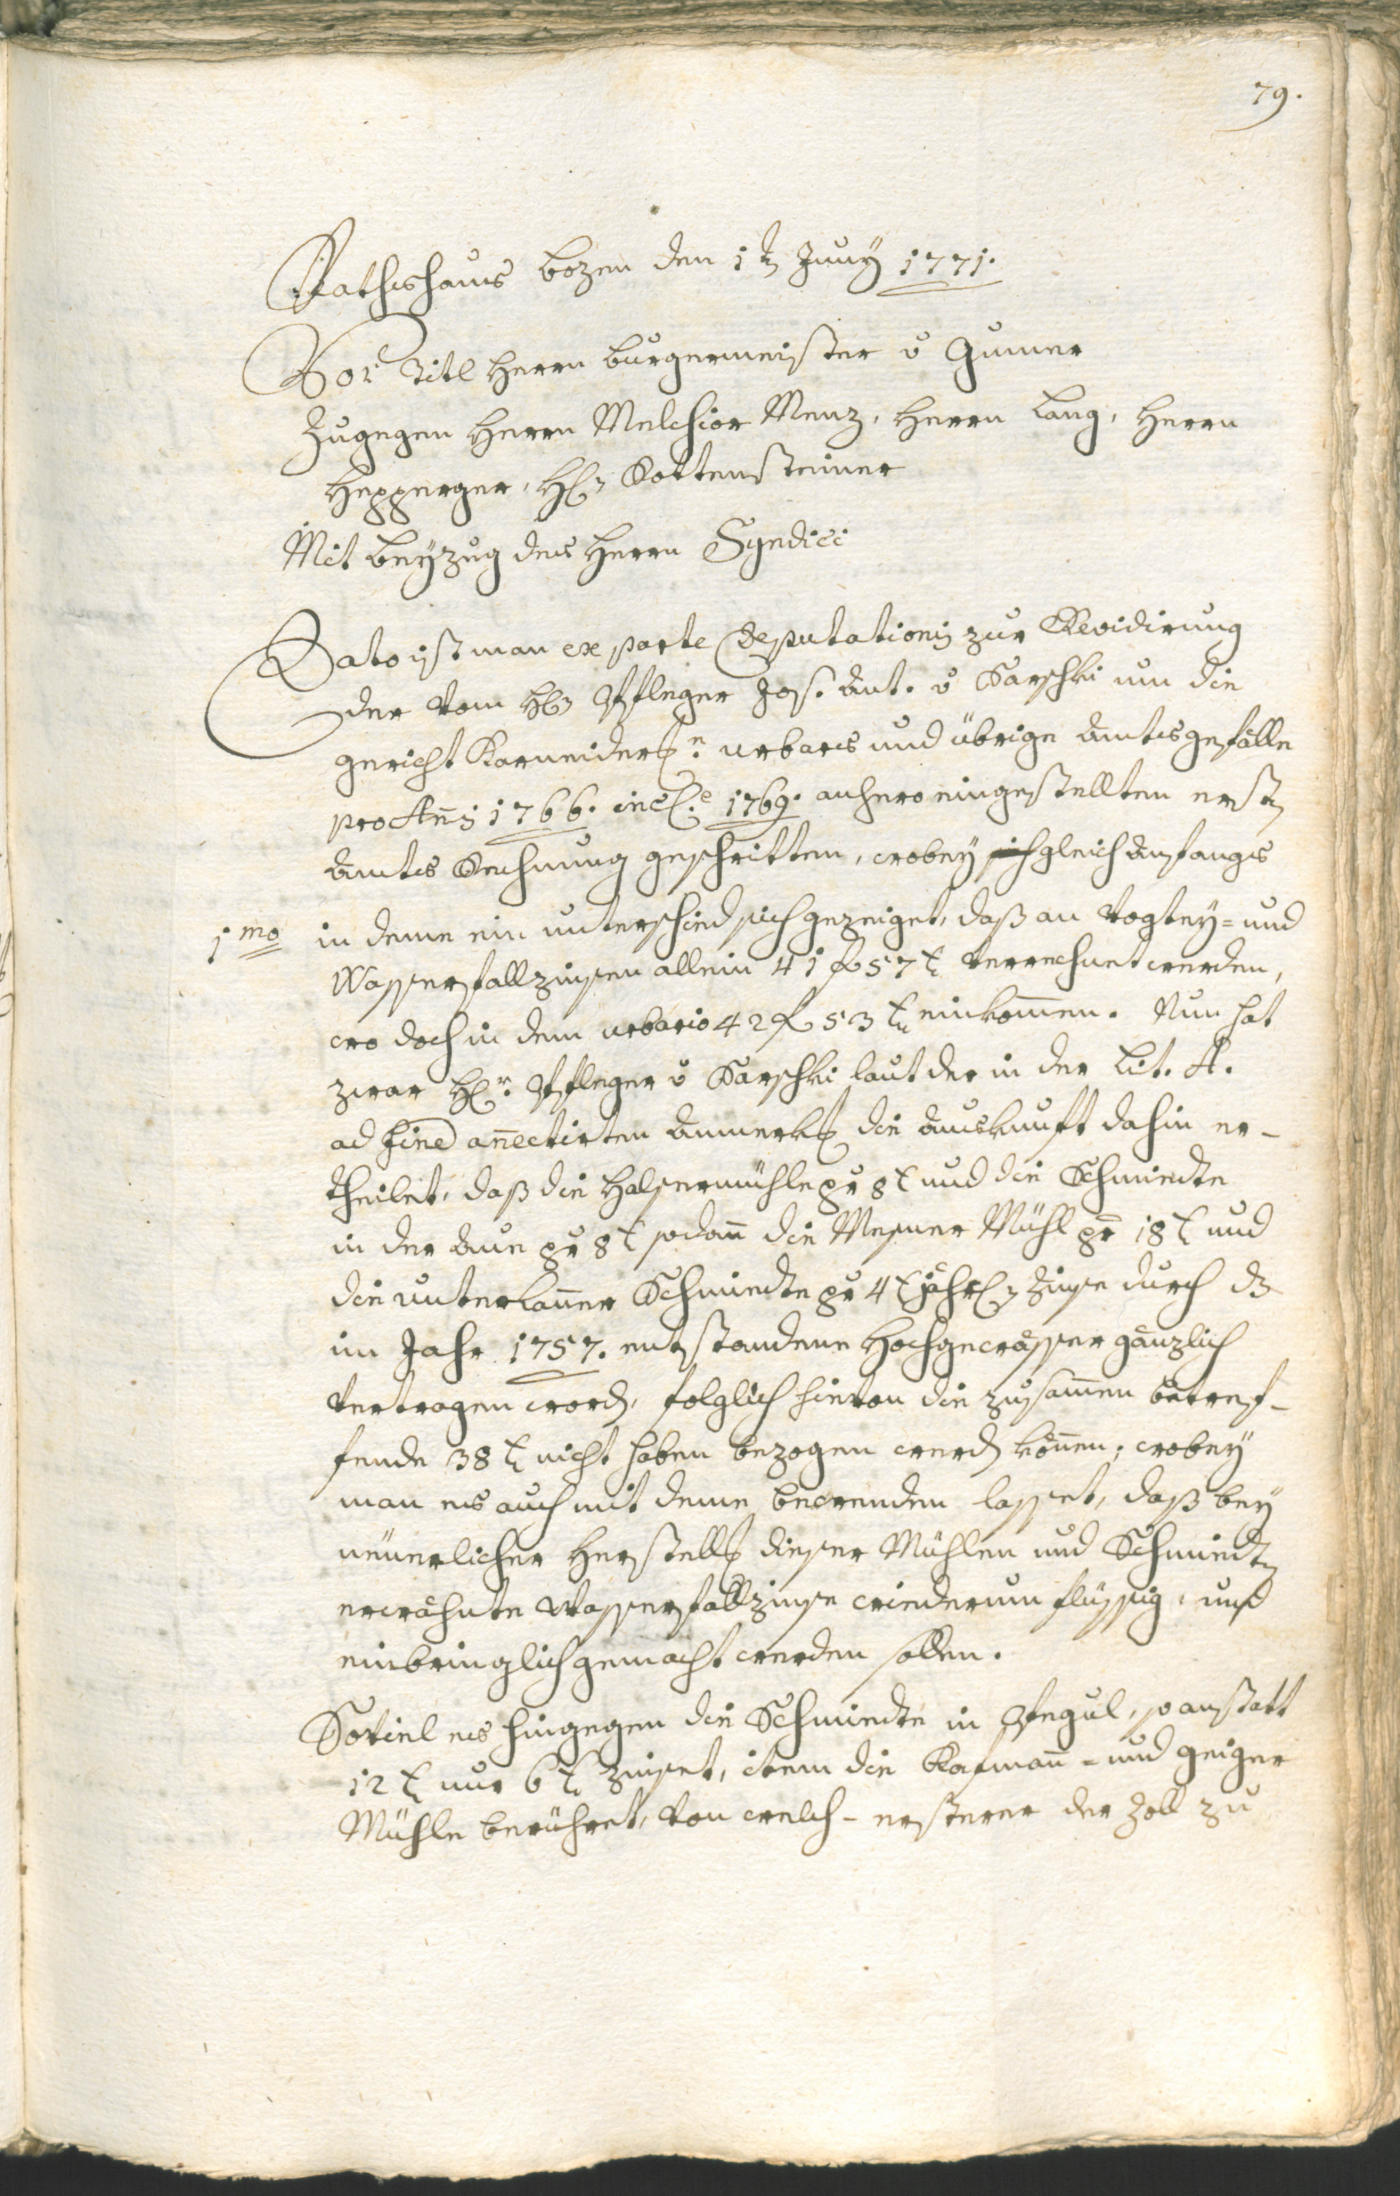 79.
Rathshaus Bozen den 1t Juny 1771.
Vor Titl Herrn burgermeister v Gumer
Zugegen Herrn Melchior Menz, Herrn Lang, Herrn
Hepperger, H: Rottensteiner
Mit beyzug des Herrn Syndici
Dato ist man ex parte Deputationis zur Revidirung
der vom H: Pfleger Jos. Ant. v Sarsthki um die
gericht Karneider: urbars und übrige Amtsgefälle
pro Anis 1766. incl: 1769. anhero eingestellten erst
Amts Rechnung geschritten, wobey gleich Anfangs
1mo in deme ein unterschied sich gezeiget, daß an Vogtey- und
Wasserfallzinsen allein 41 f 57 x verrechnet werden,
wo doch in dem urbario 42 f 53 x einkomen. Nun hat
zwar H: Pfleger v Sarsthki laut der in der Lit. A.
ad fine anectirten Anmerk: die Auskunft dahin er-
theilet, daß die Halsermühle pr 8 x und die Schmiedte
in der Aue pr 8 x sodan die Mesner Mühl pr 18 x und
die unterkaner Schmiedte pr 4 x jährl: Zinse durch dz
im Jahr 1757. entstandene Hochgewässer gänzlich
vertragen word, folglich hievon die zusamen betref-
fende 38 x nicht haben bezogen werd könen; wobey
man es auch mit deme bewenden lasset, daß bey
neuerlicher Herstell: dieser Mühlen und Schmiedt
erwähnte Wasserfallzinse wiederum flüssig, und
einbringlich gemacht werden sollen.
Soviel es hingegen die Schmiedte in Steguel, so anstatt
12 x nur 6 x zinset, item die Kafman- und geiger
Mühle berühret, von welch-ersterer der Zoll zu